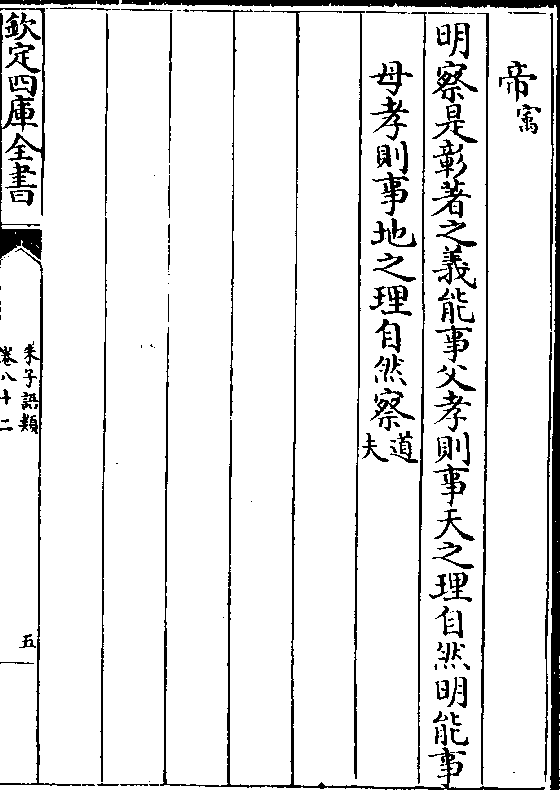 帝㝢
明察是彰著之義能事父孝則事天之理自然明能事
母孝則事地之理自然察道夫
欽定四庫全書
朱子語類
卷八十二
五